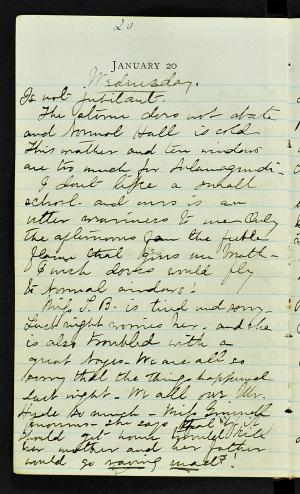 20.
JANUARY 20
Wednesday.
Is not jubilant.
The storm does not abate
and Normal Hall is cold
This weather and ten windows
are too much for
I don't like a small
school and ours is an
utter to me Only
the afternoons fan the feeble
flame that me
I wish doves would fly
to Normal windows!
Miss S. B. is tired and sorry
Last night worries her, and she
is also troubled with a
great We are all so
sorry that the thing happened
last night - We all owe Mr.
Hyde so much - Miss
- she says that it
would get home would kill
her mother and her father
would go raving mad!